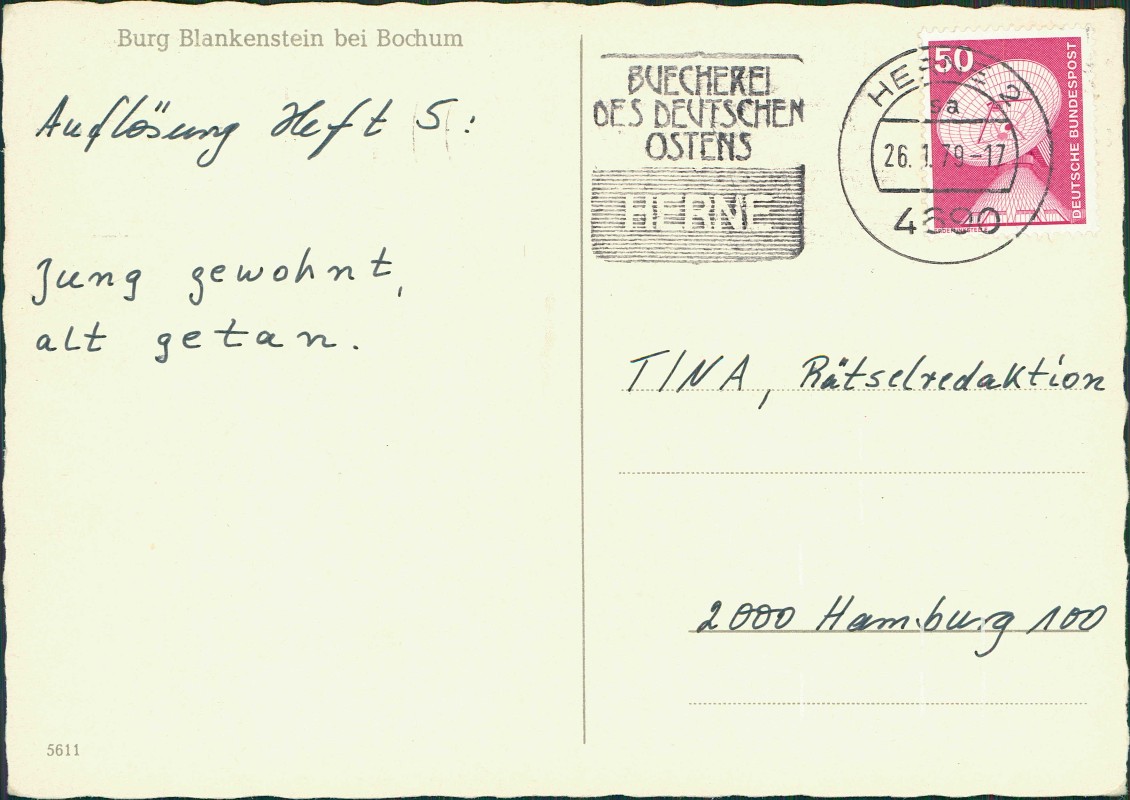 Burg Blankenstein bei Bochum
Auflösung Heft 5:
Jung gewohnt,
alt getan.
5611
BUECHEREI
DES DEUTSCHEN
OSTENS
HERNE
HERNE 2
sa
26.1.79-17
4690
50
DEUTSCHE BUNDESPOST
TINA, Rätselredaktion
2000 Hamburg 100